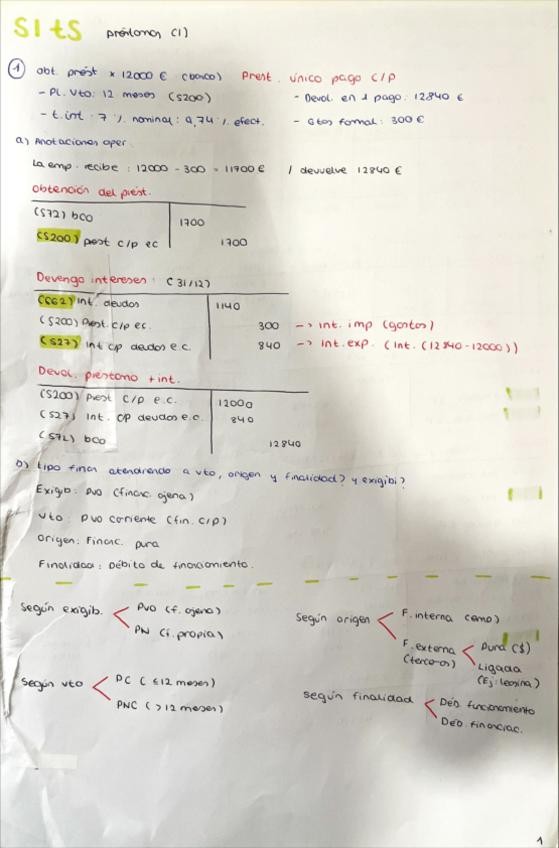 SITS préstamos (1)
1 obt. prést x 12000 € (banco) Prest. único pago C/P
- Pl. Vto: 12 meses (5200) - Devol. en 1 pago: 12840 €
- t. int. 7 % nominal: 9,74 % efect. - Gtos formal: 300 €
a) Anotaciones oper.
La emp. recibe: 12000 - 300 = 11700 € / devuelve 12840 €
Obtención del prést.
(572) bco 1700
(5200) prest c/p ec 1700
Devengo intereses: (31/12)
(662) Int. deudas 1140
(5200) Prest. c/p ec. 300 → int. imp (gastos)
(527) int c/p deudas e.c. 840 → int. exp. (int. (12840-12000))
Devol. préstamo + int.
(5200) prest C/P e.c. 12000
(527) Int. C/P deudas e.c. 840
(572) bco 12840
b) tipo finan atendiendo a vto, origen y finalidad? y exigibi?
Exigib: PVO (financ. ajena)
Vto: PVO corriente (fin. C/P)
Origen: Financ. pura
Finalidad: Débito de financiamiento.
Según exigib. PVO (f. ajena)
PN (f. propia)
Según origen F. interna (emp)
F. externa (terceros) Pura ($)
Ligada (Ej: leasing)
Según vto PC (≤12 meses)
PNC (>12 meses)
según finalidad Déb. funcionamiento
Déb. financiac.
1